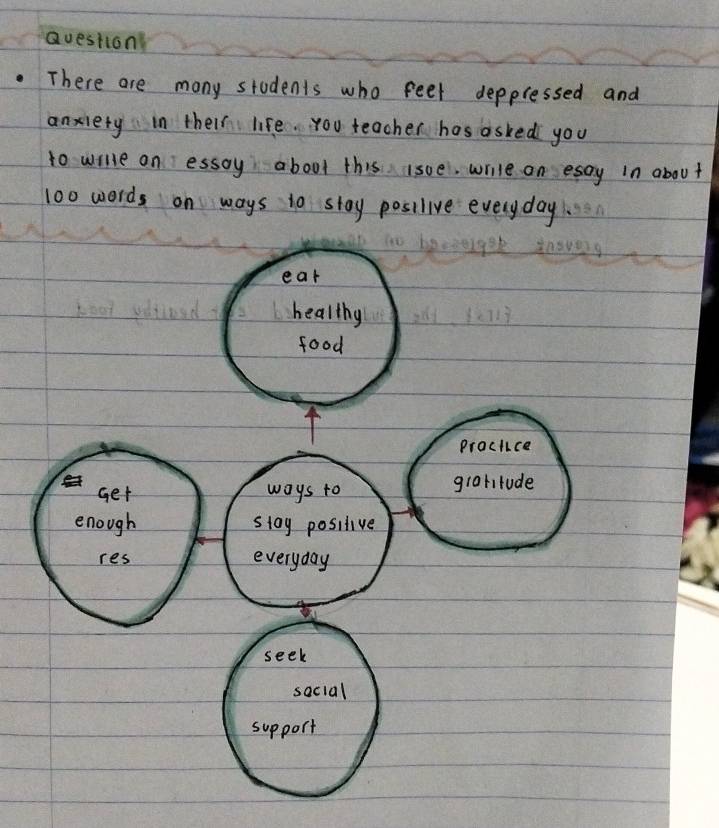 Question
• There are many students who feel deppressed and
anxiety in their life. You teacher has asked you
to write an essay about this isue. write an esay in about
100 words on ways to stay positive everyday.
eat
healthy
food
Practice
gratitude
Get
enough
res
ways to
stay positive
everyday
seek
social
support